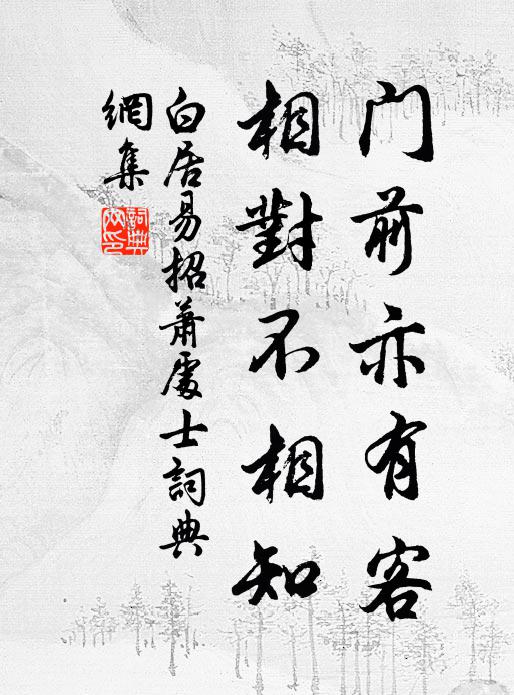 门前亦有客
相對不相知
白居易招蕭處士詞典
網集
詞典網印